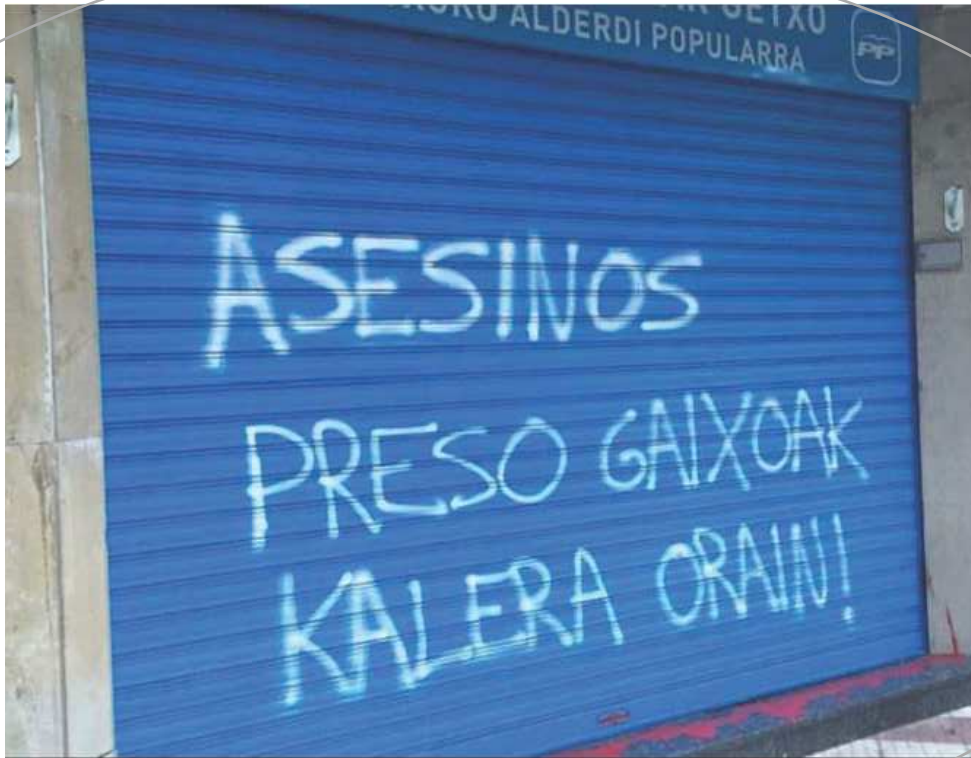 GETXO
ALDERDI POPULARRA
PP
ASESINOS
PRESO GAIXOAK
KALERA ORAIN!